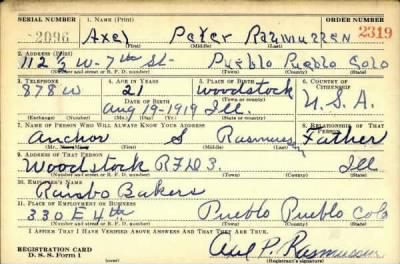 SERIAL NUMBER 1. NAME (Print) ORDER NUMBER
2096 Axel Peter Rasmussen 2319
(First) (Middle) (Last)
2. ADDRESS (Print)
112½ W-7th St- Pueblo Pueblo Colo
(Number and street or R. F. D. number) (Town) (County) (State)
3. TELEPHONE 4. AGE IN YEARS 5. PLACE OF BIRTH 6. COUNTRY OF CITIZENSHIP
878W 21 Woodstock
DATE OF BIRTH (Town or county)
Aug 19-1919 Ill. U.S.A.
(Exchange) (Number) (Mo.) (Day) (Yr.) (State or country)
7. NAME OF PERSON WHO WILL ALWAYS KNOW YOUR ADDRESS 8. RELATIONSHIP OF THAT PERSON
Anchor S Rasmussen Father
(Mr., Mrs., Miss) (First) (Middle) (Last)
9. ADDRESS OF THAT PERSON
Woodstock RFD3. Ill
(Number and street or R. F. D. number) (Town) (County) (State)
10. EMPLOYER'S NAME
Rainbo Bakers
11. PLACE OF EMPLOYMENT OR BUSINESS
330 E 4th Pueblo Pueblo Colo
(Number and street or R. F. D. number) (Town) (County) (State)
I AFFIRM THAT I HAVE VERIFIED ABOVE ANSWERS AND THAT THEY ARE TRUE.
REGISTRATION CARD
D. S. S. Form 1 Axel P. Rasmussen